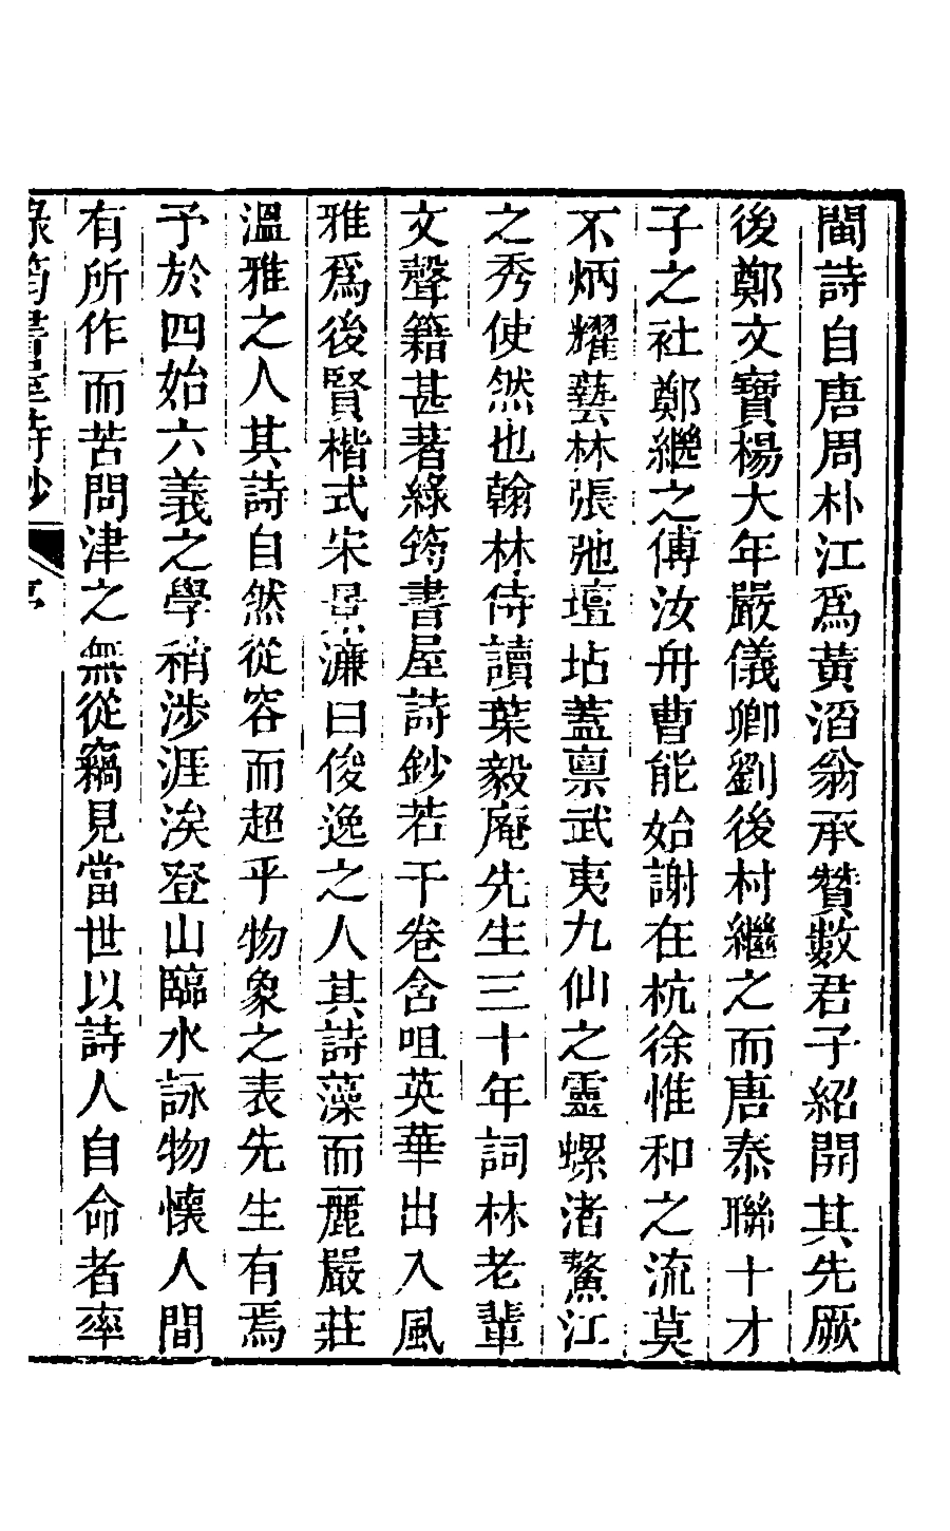 閩詩自唐周朴江爲黃滔翁承贊數君子紹開其先厥
後鄭文寶楊大年嚴儀卿劉後村繼之而唐泰聯十才
子之社鄭繼之傅汝舟曹能始謝在杭徐惟和之流莫
不炳燿藝林張弛壇坫蓋禀武夷九仙之靈螺渚鰲江
之秀使然也翰林侍讀葉毅庵先生三十年詞林老輩
文聲籍甚著綠筠書屋詩鈔若干卷含咀英華出入風
雅爲後賢楷式宋景濂曰俊逸之人其詩藻而麗嚴莊
溫雅之人其詩自然從容而超乎物象之表先生有焉
予於四始六義之學稍涉涯涘登山臨水詠物懷人間
有所作而苦問津之無從竊見當世以詩人自命者率
綠筠書屋詩鈔 序